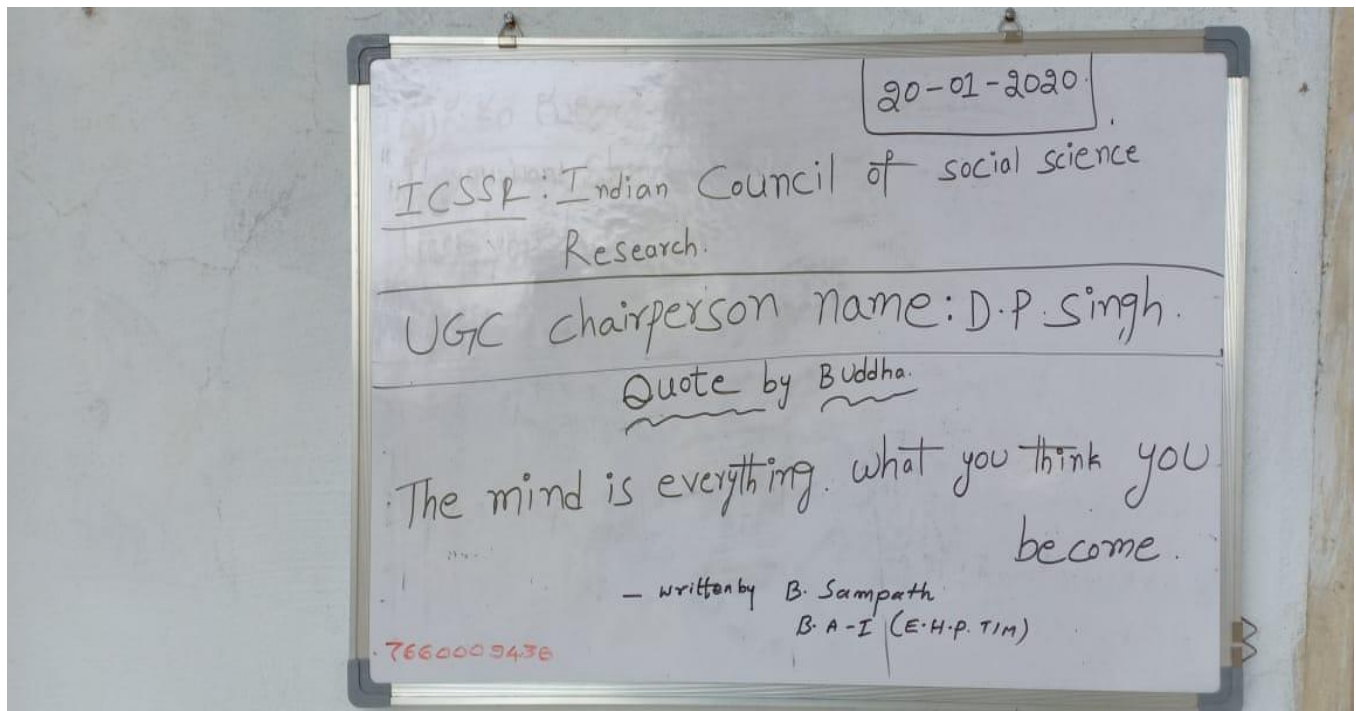 20-01-2020.
ICSSR: Indian Council of social science
Research.
UGC chairperson name: D.P. Singh.
Quote by Buddha.
The mind is everything. what you think you
become.
- written by B. Sampath
B.A-I (E.H.P. T/M)
7660009436